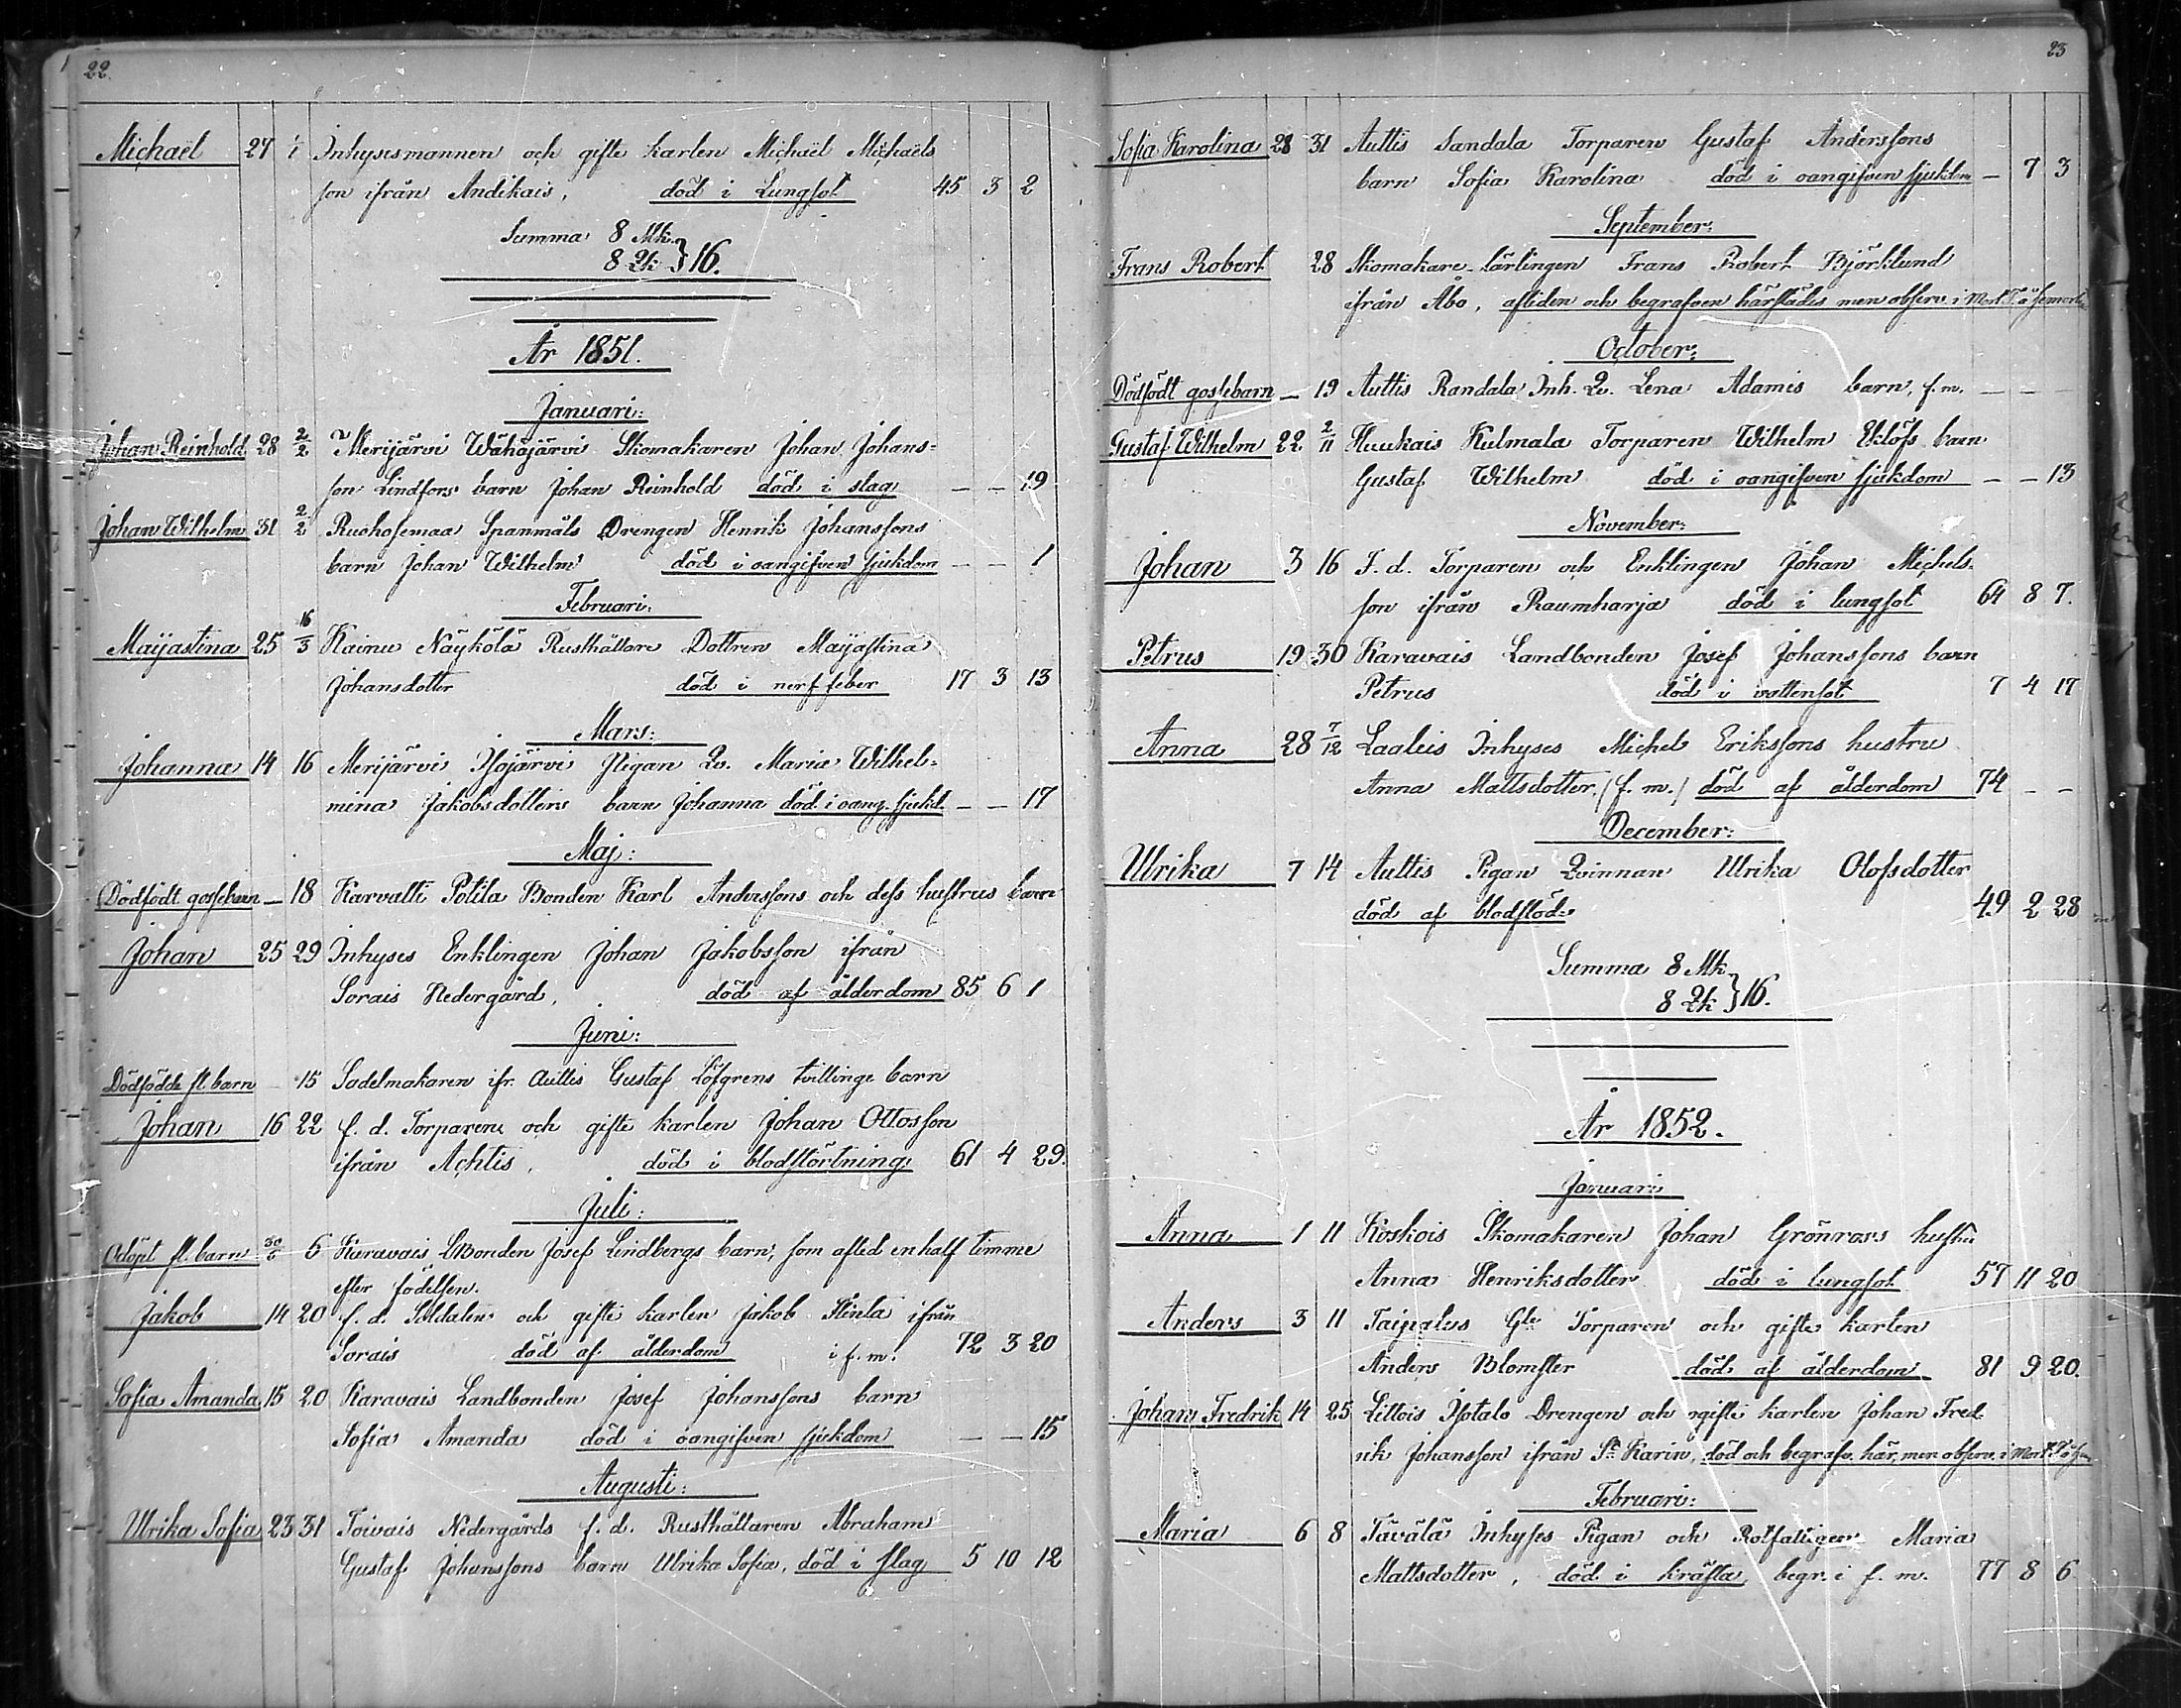 22.
Michaël 27 1 Inhysesmannen och gifte karlen Michaël Michaels
son ifrån Andikais, död i Lungsot 45 3 2
Summa 8 Mk.
8 Qk } 16.
År 1851.
Januari:
Johan Reinhold 28 2/2 Merijärvi Wähäjärvi Skomakaren Johan Johans=
son Lindfors barn Johan Reinhold död i slag — — 19
Johan Wilhelm 31 2/2 Ruohosemaa Spanmåls Drengen Henrik Johanssons
barn Johan Wilhelm död i oangifven sjukdom — — 1
Februari:
Maijastina 25 16/3 Kainu Näykölä Rusthållare Dottren Maijastina
Johansdotter död i nerffeber 17 3 13
Mars:
Johanna 14 16 Merijärvi Isojärvi Pigan Qv. Maria Wilhel=
mina Jakobsdotters barn Johanna död i oang. sjukd. — — 17
Maj:
Dödfödt gossebarn — 18 Karvatti Potila Bonden Karl Anderssons och dess hustrus barn
Johan 25 29 Inhyses Enklingen Johan Jakobsson ifrån
Sorais Nedergård, död af ålderdom 85 6 1
Juni:
Dödfödde fl. barn — 15 Sadelmakaren ifr. Auttis Gustaf Löfgrens tvillinge barn
Johan 16 22 f. d. Torparen och gifte karlen Johan Ottosson
ifrån Achtis, död i blodstörtning 61 4 29.
Juli:
Odöpt fl. barn 30/6 6 Karavais LBonden Josef Lindbergs barn, som afled en half timme
efter födelsen.
Jakob 14 20 f. d. Soldaten och gifte karlen Jakob Flinta ifrån
Sorais död af ålderdom i f. m. 72 3 20
Sofia Amanda 15 20 Karavais Landbonden Josef Johanssons barn
Sofia Amanda död i oangifven sjukdom — — 15
Augusti:
Ulrika Sofia 23 31 Toivais Nedergårds f. d. Rusthållaren Abraham
Gustaf Johanssons barn Ulrika Sofia, död i slag 5 10 12
23
Sofia Karolina 28 31 Auttis Sandala Torparen Gustaf Anderssons
barn Sofia Karolina död i oangifven sjukdom — 7 3
September:
Frans Robert 28 Skomakare-lärlingen Frans Robert Björklund
ifrån Åbo, afliden och begrafven härstädes men observ. i Mort. T.
October:
Dödfödt gossebarn — 19 Auttis Randala Inh. Qv. Lena Adamis barn, f. m. — —
Gustaf Wilhelm 22 2/11 Huukais Kulmala Torparen Wilhelm Eklöfs barn
Gustaf Wilhelm död i oangifven sjukdom — — 13
November:
Johan 3 16 F. d. Torparen och Enklingen Johan Michels=
son ifrån Raumharja död i lungsot 64 8 7.
Petrus 19 30 Karavais Landbonden Josef Johanssons barn
Petrus död i vattensot 7 4 17
Anna 28 7/12 Laaleis Inhyses Michel Erikssons hustru
Anna Mattsdotter. (f. m.) död af ålderdom 74 — —
December:
Ulrika 7 14 Auttis Pigan Qvinnan Ulrika Olofsdotter
död af blodflöd 49 2 28
Summa 8 Mk
8 Qk } 16.
År 1852.
Januari:
Anna 1 11 Koskois Skomakaren Johan Grönroos hustru
Anna Henriksdotter död i lungsot 57 11 20
Anders 3 11 Taipalus Gle Torparen och gifte karlen
Anders Blomster död af ålderdom 81 9 20.
Johan Fredrik 14 25 Littois Isotalo Drengen och ogifte karlen Johan Fred
rik Johansson ifrån St Karin, död och begrafv. här, men observ. i Mort. T.
Februari:
Maria 6 8 Tävälä Inhyses Pigan och Rotfattigen Maria
Mattsdotter, död i kräfta, begr. i f. m. 77 8 6